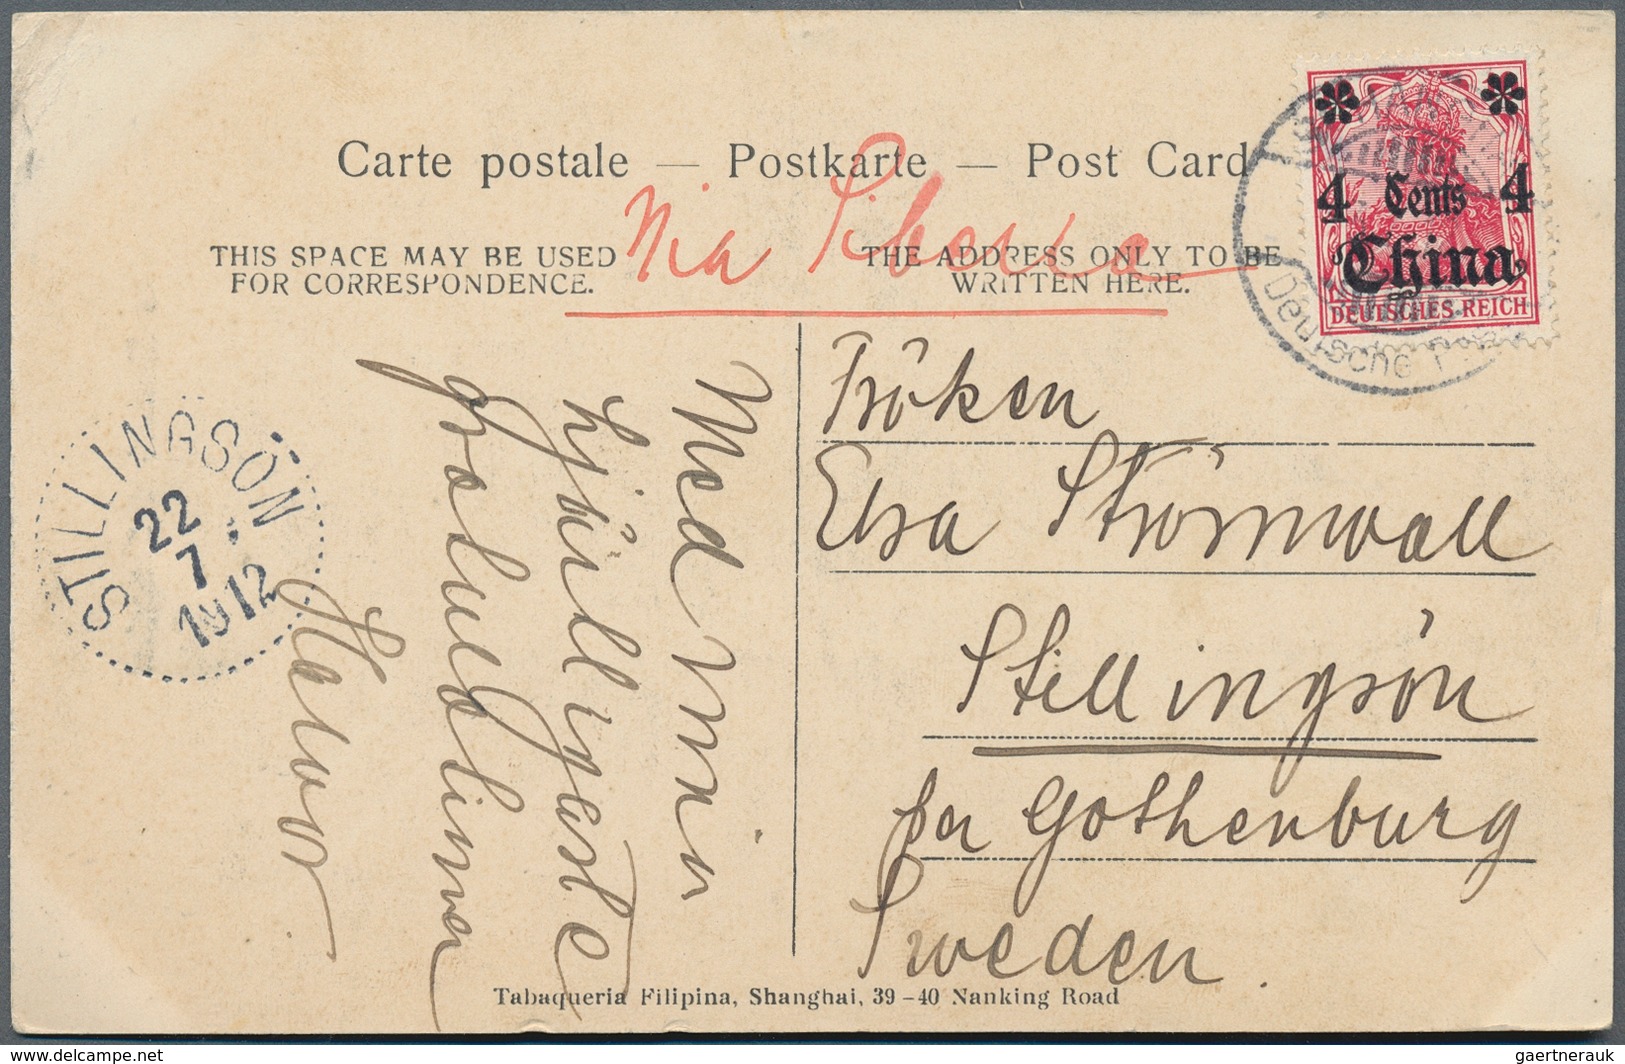 Carte postale — Postkarte — Post Card
Via Siberia
THIS SPACE MAY BE USED
FOR CORRESPONDENCE.
THE ADDRESS ONLY TO BE
WRITTEN HERE.
4 Cents 4
China
DEUTSCHES REICH
Deutsche P
Fröken
Elsa Strömwall
Stillingsön
per Gothenburg
Sweden.
Med mina
hjärtligaste
gratulationer
STILLINGSÖN
22
7
1912
Tabaqueria Filipina, Shanghai, 39-40 Nanking Road
delcampe.net
gaertnerauk